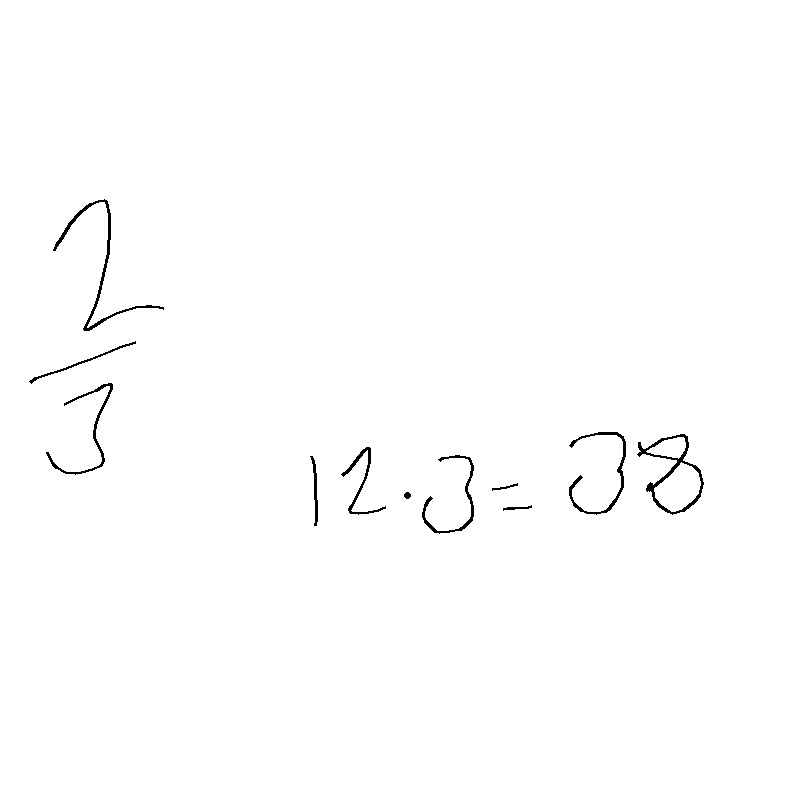 2/3
12·3=38